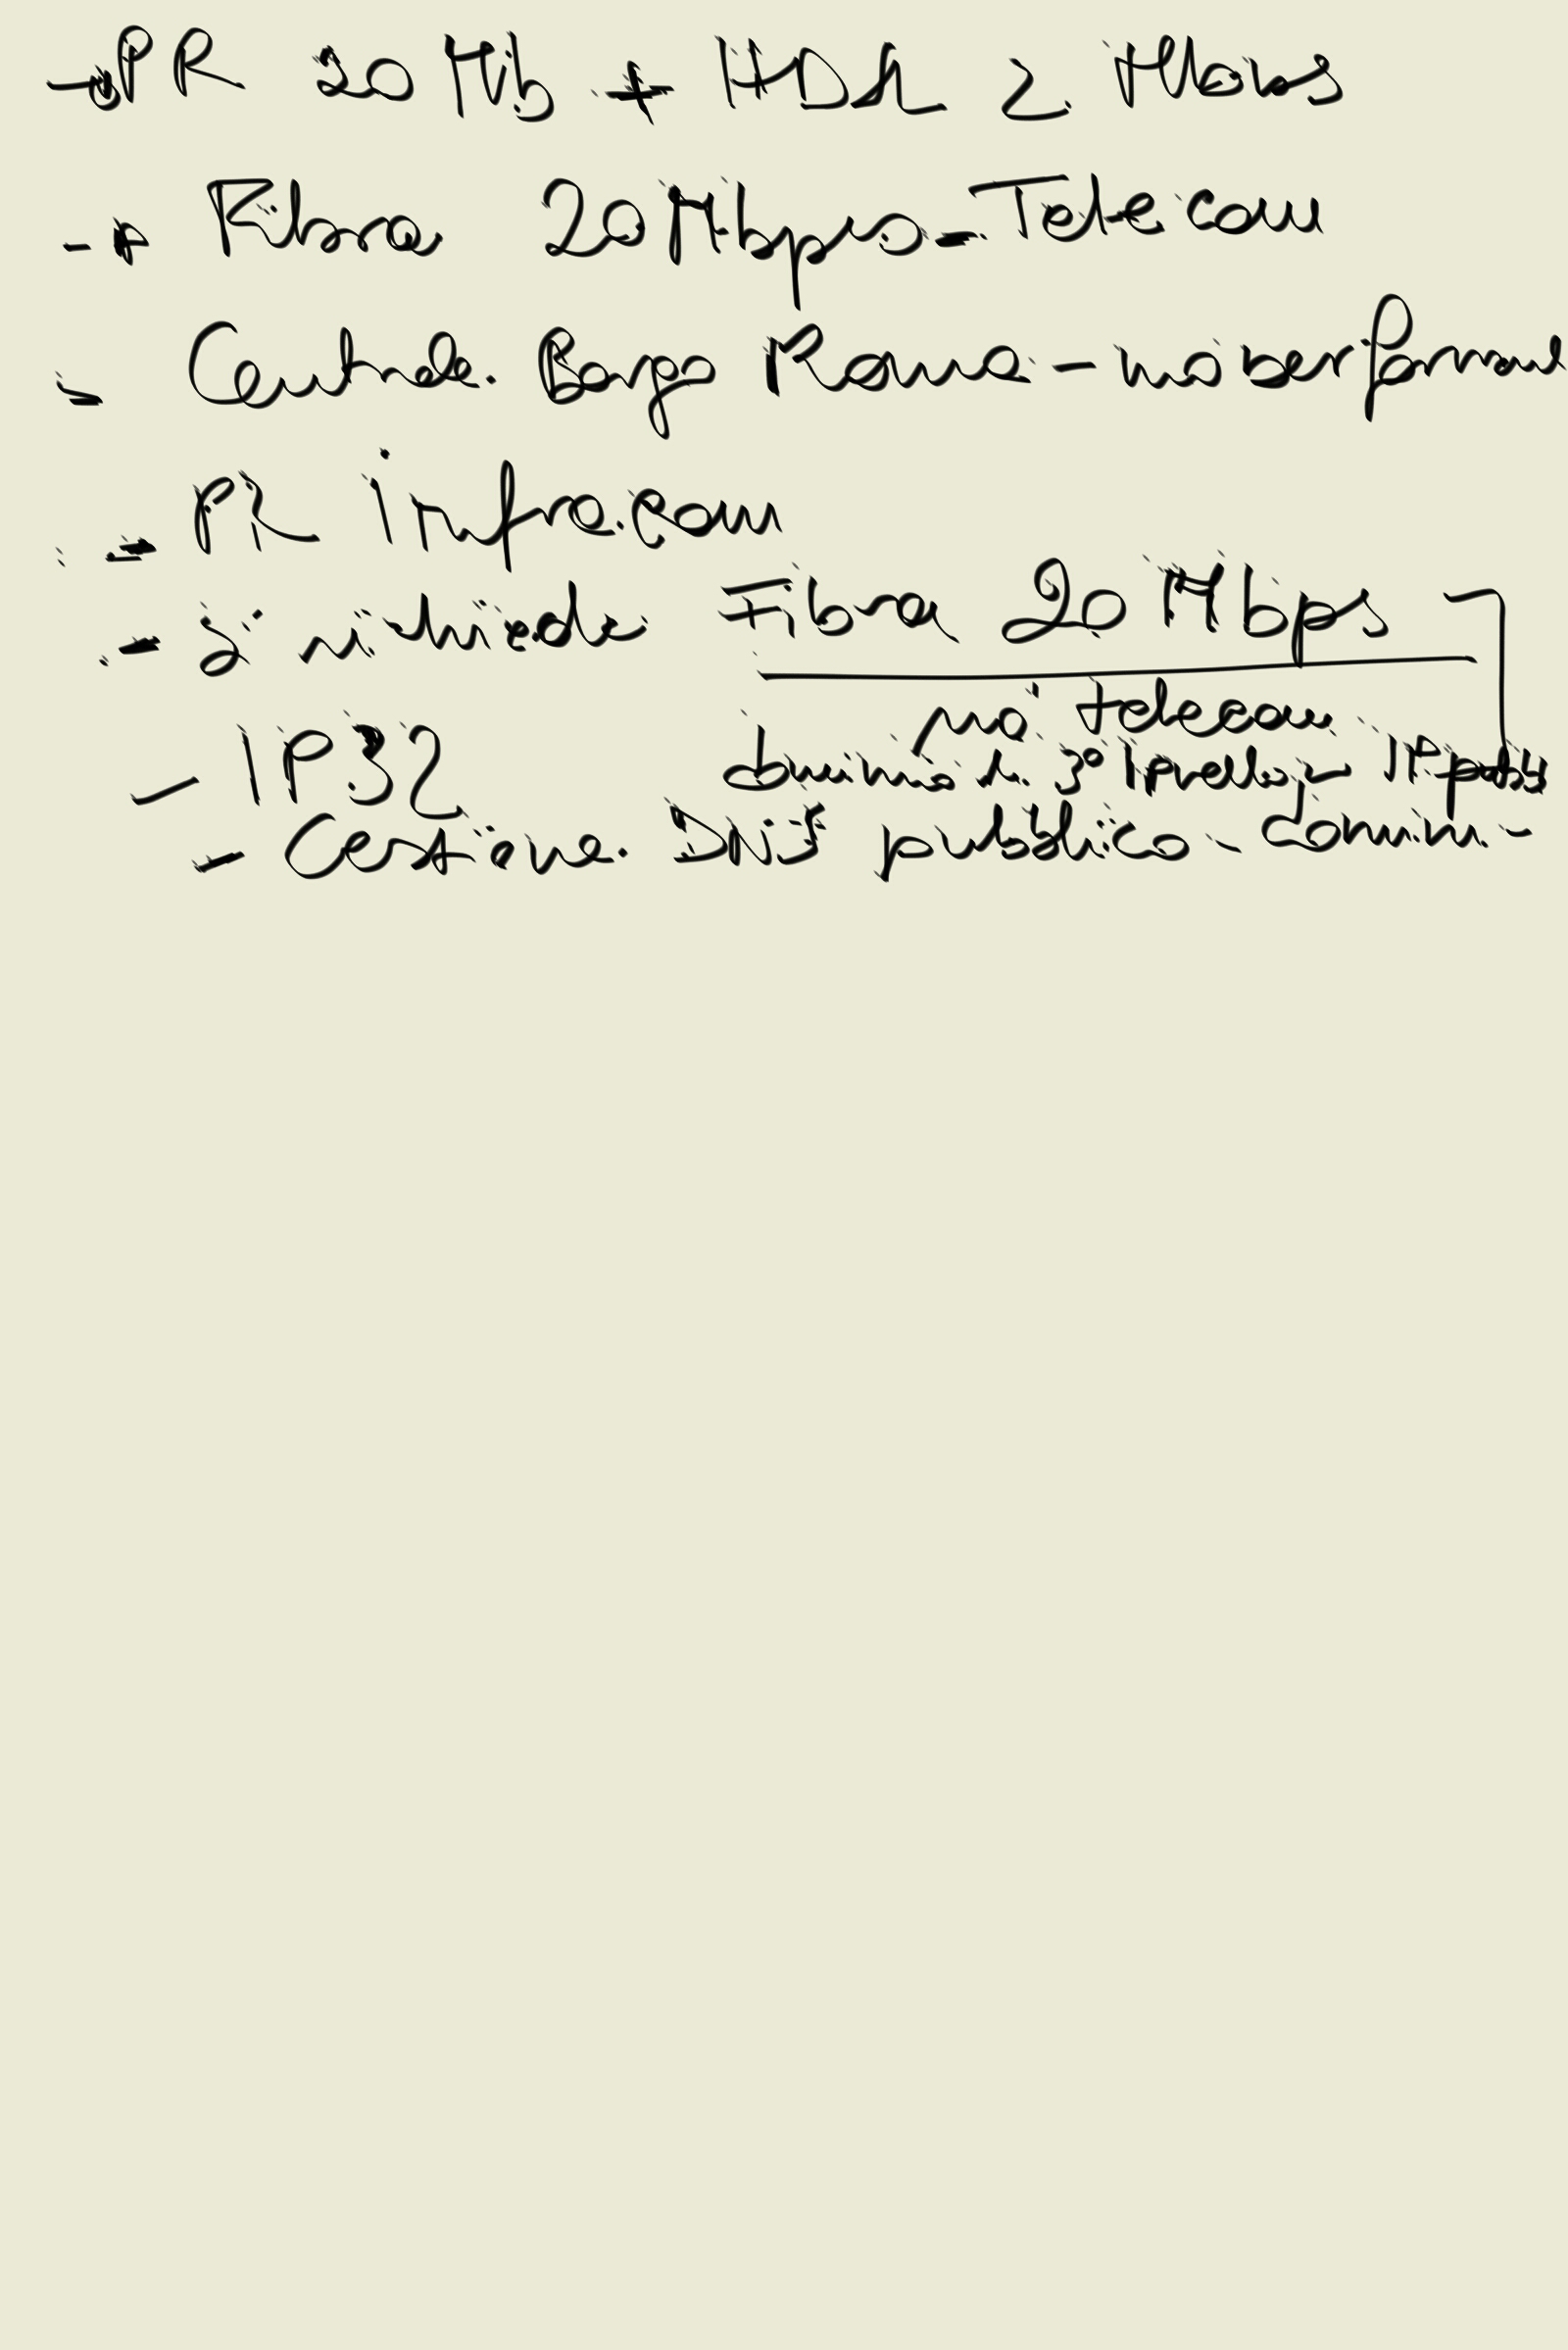 → PR 20 Mb + HDSL 2 Mbps
→ Fibra 20Mbps - Telecom
- Centrale Borgo Roma -
- PR infracom
- si richiede Fibra 20 Mbps
no telecom
- IP 32
dominio di 3° livello - IP pubb
- Gestione DNS pubblico - domini -